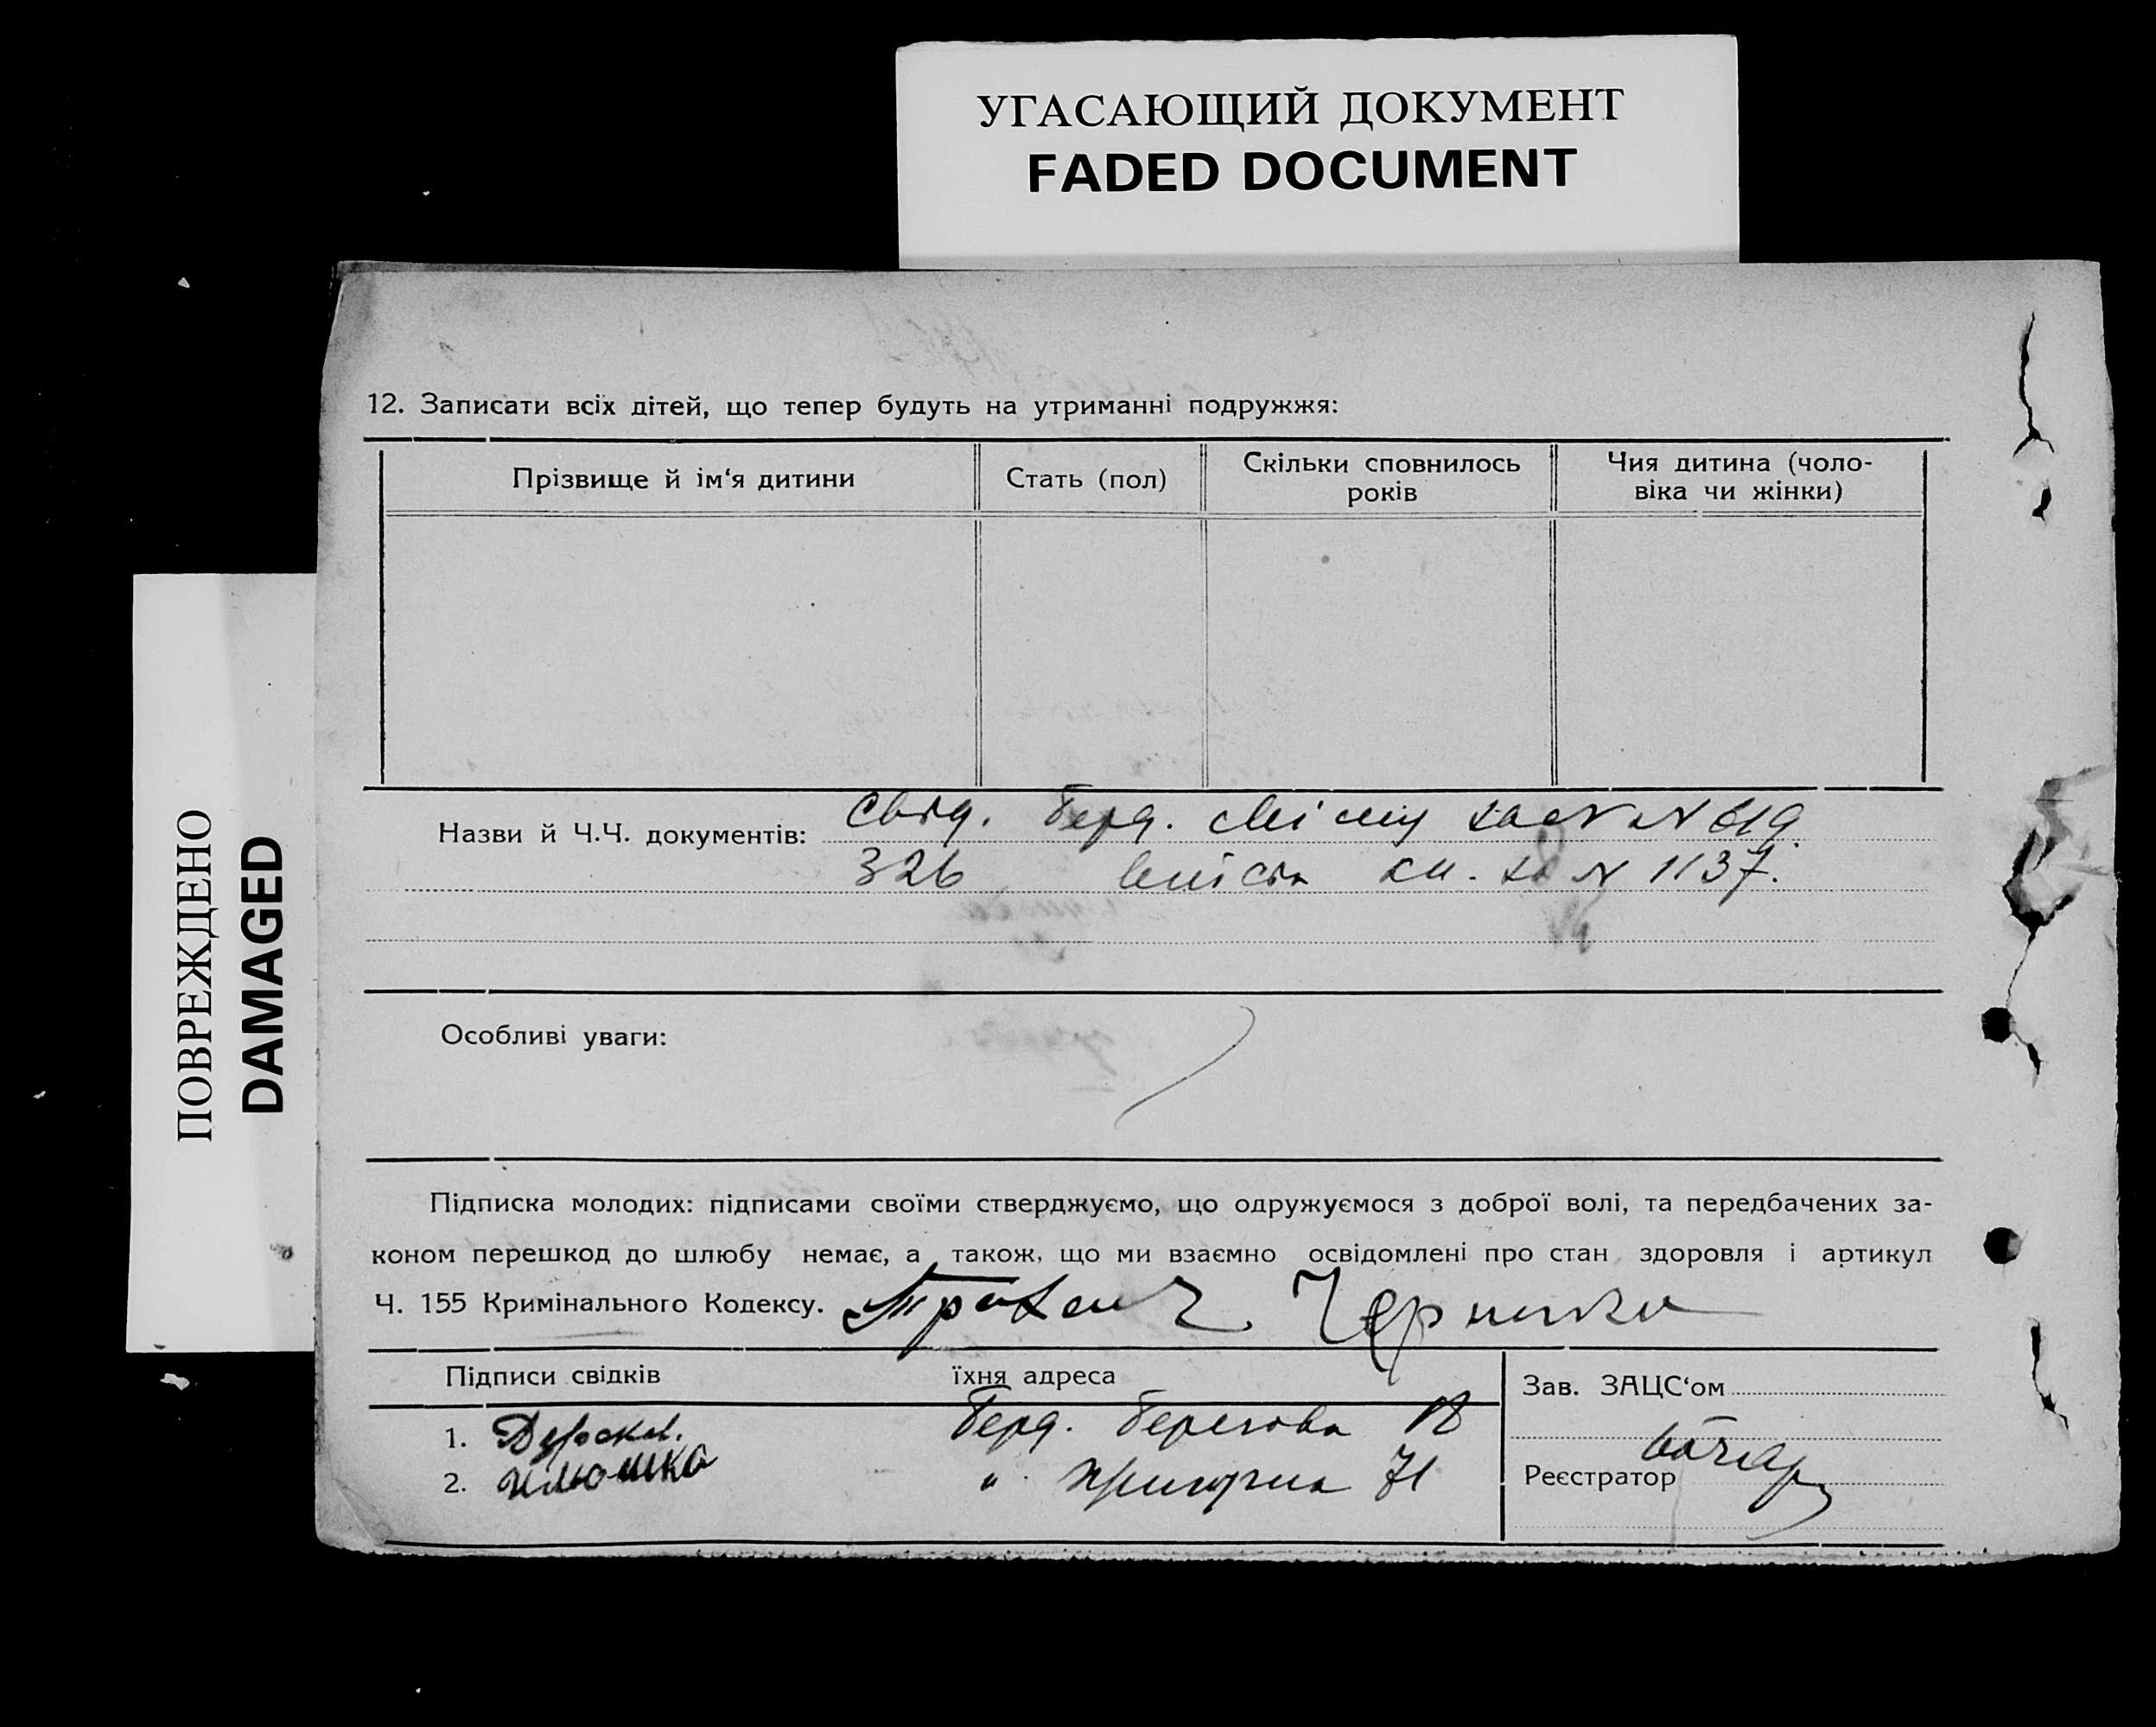 УГАСАЮЩИЙ ДОКУМЕНТ
FADED DOCUMENT
ПОВРЕЖДЕНО
DAMAGED
12. Записати всіх дітей, що тепер будуть на утриманні подружжя:
Прізвище й ім‘я дитини
Стать (пол)
Скільки сповнилось
років
Чия дитина (чоло-
віка чи жінки)
Назви й Ч.Ч. документів: Свід. Берд. за N N 619
326 кн. за N 1137.
Особливі уваги:
Підписка молодих: підписами своїми стверджуємо, що одружуємося з доброї волі, та передбачених за-
коном перешкод до шлюбу немає, а також, що ми взаємно освідомлені про стан здоровля і артикул
Ч. 155 Кримінального Кодексу.
Підписи свідків
їхня адреса
Зав. ЗАЦС‘ом
1. Берд. Берегова 18
2. Илюшка " 71
Реєстратор